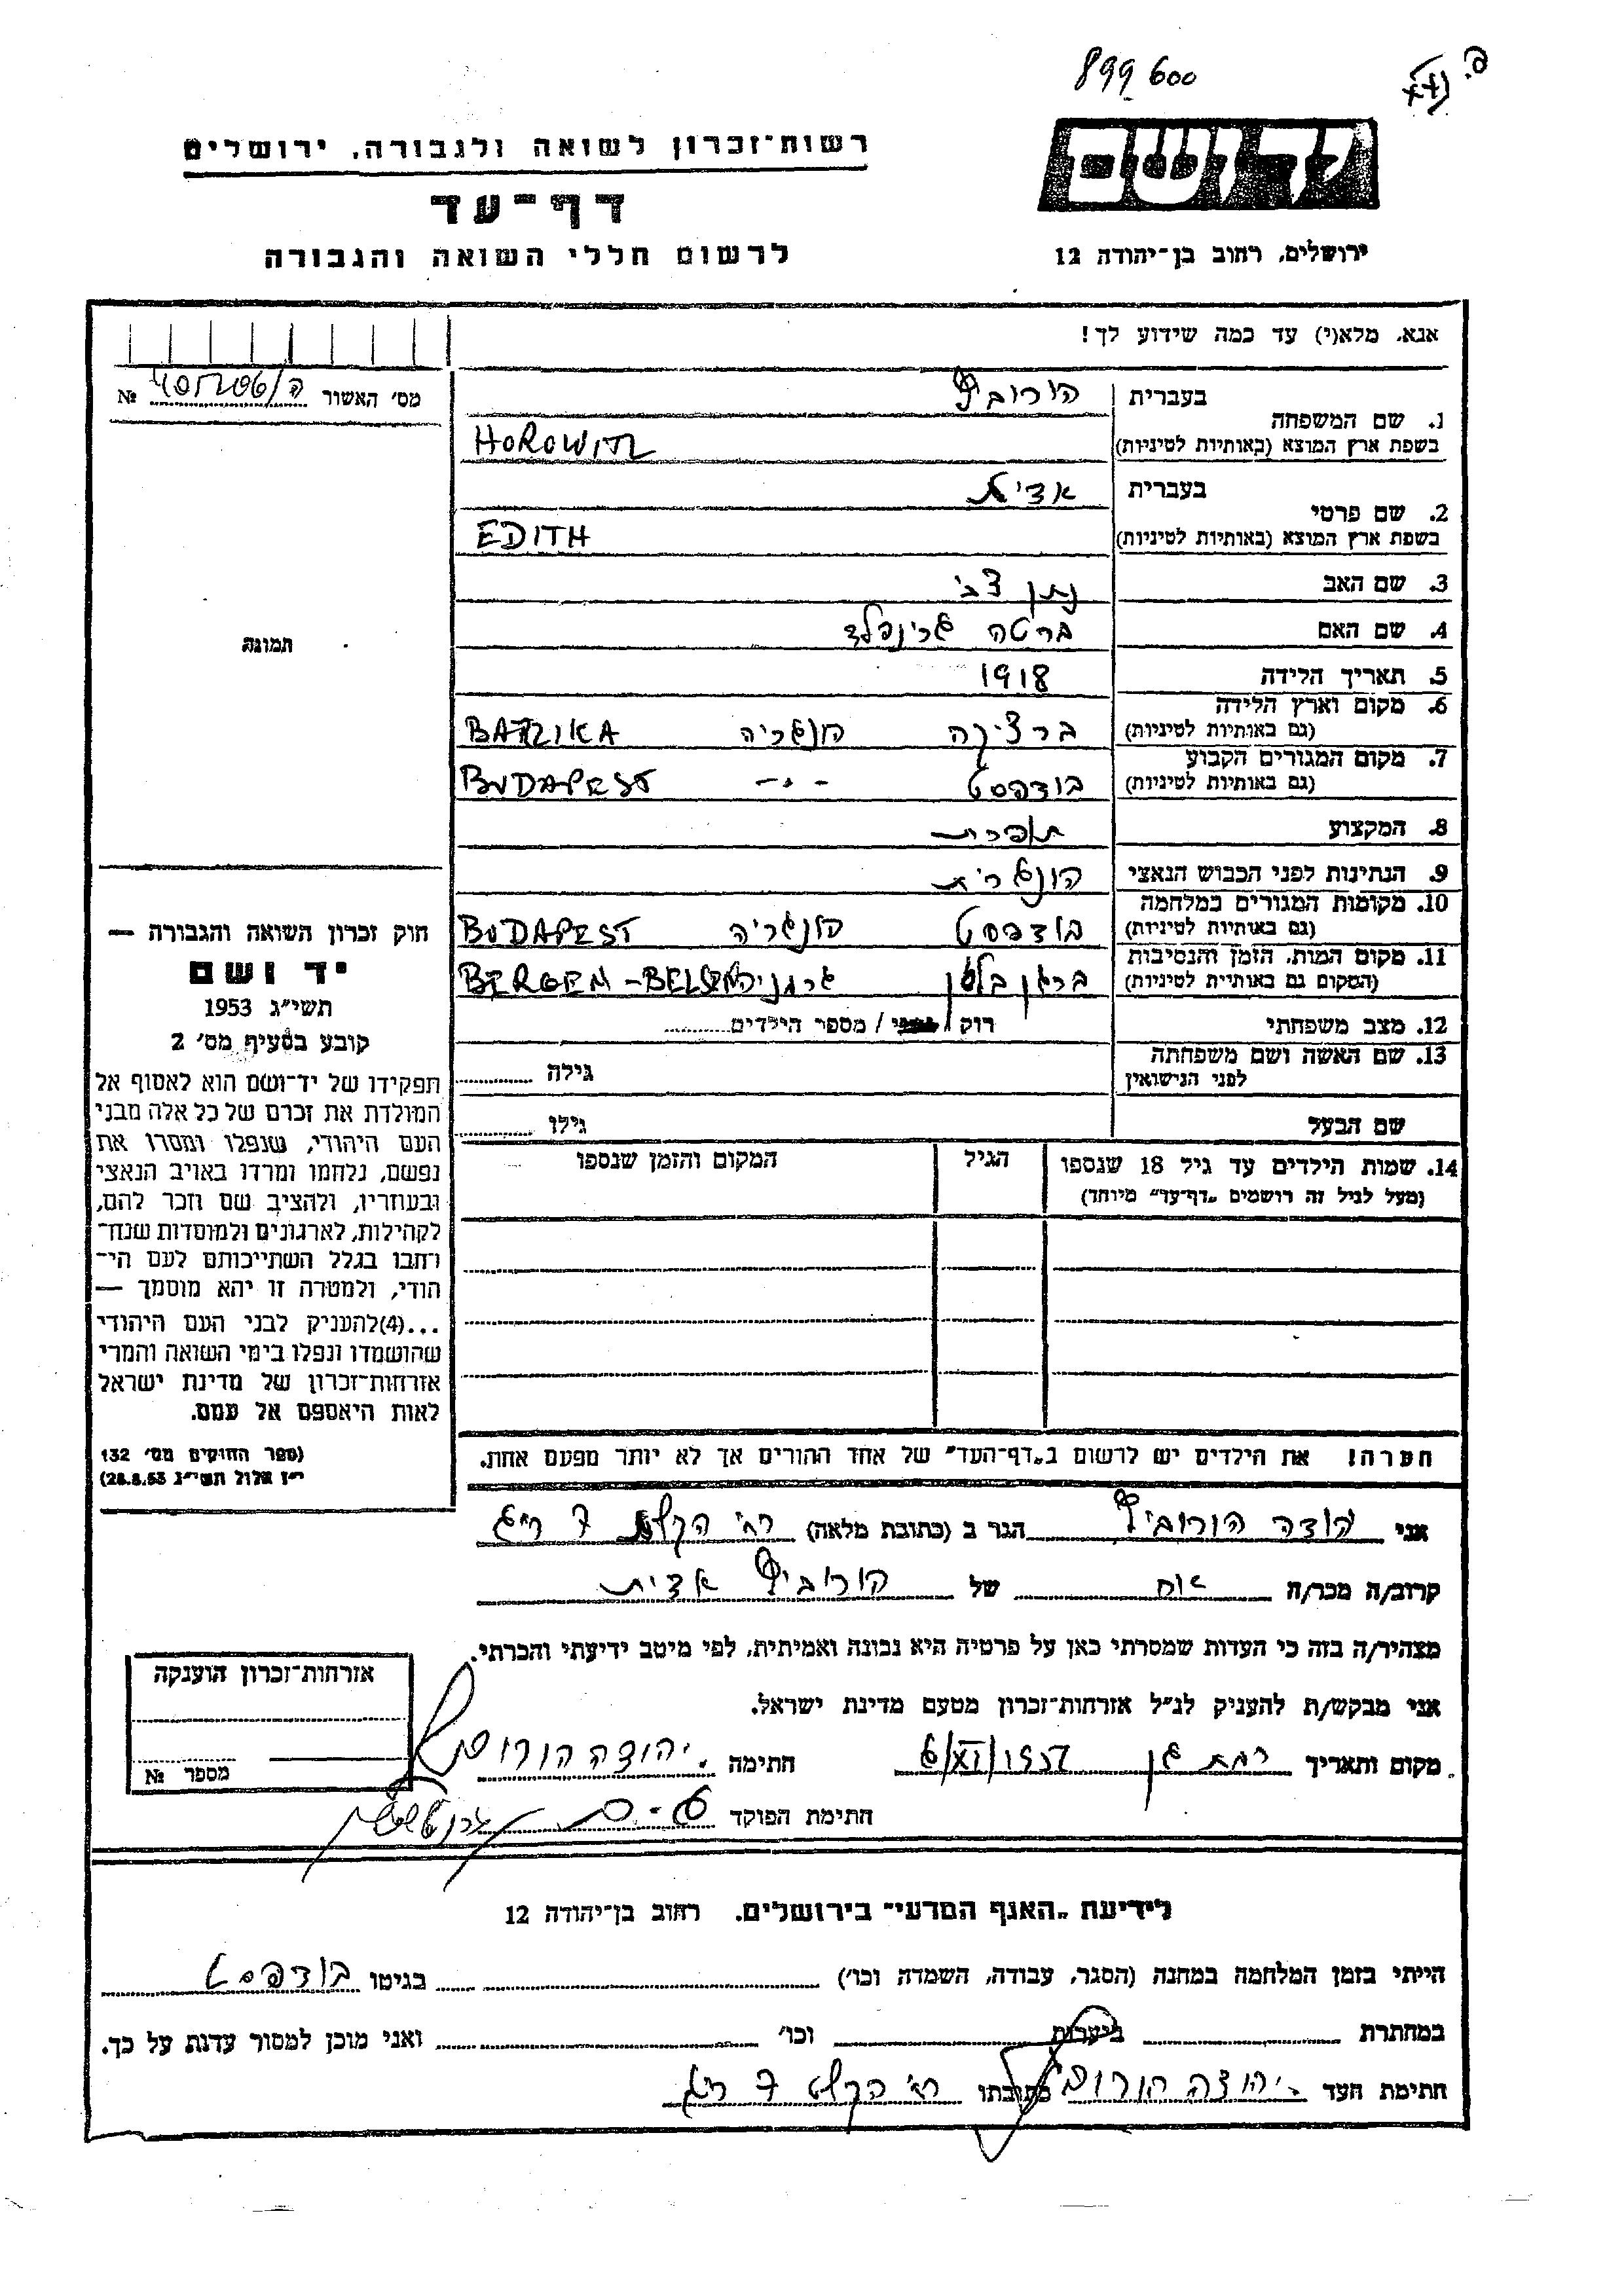 899 600
רשות-זכרון לשואה ולגבורה, ירושלים
יד ושם
דף-עד
לרשום חללי השואה והגבורה
ירושלים, רחוב בן-יהודה 12
אנא, מלא(י) עד כמה שידוע לך!
מס' האשור №
1. שם המשפחה
בעברית הורוביץ
בשפת ארץ המוצא (באותיות לטיניות) HOROWITZ
2. שם פרטי
בעברית אדית
בשפת ארץ המוצא (באותיות לטיניות) EDITH
3. שם האב נתן צבי
4. שם האם ברטה גרינפלד
תמונה
5. תאריך הלידה 1918
6. מקום וארץ הלידה (גם באותיות לטיניות) ברציקה הונגריה
7. מקום המגורים הקבוע (גם באותיות לטיניות) בודפסט -"- BUDAPEST
8. המקצוע תופרת
9. הנתינות לפני הכבוש הנאצי הונגרית
10. מקומות המגורים במלחמה (גם באותיות לטיניות) בודפסט הונגריה BUDAPEST
11. מקום המות, הזמן והנסיבות (המקום גם באותיות לטיניות) ברגן בלזן גרמניה BERGEN-BELSEN
12. מצב משפחתי רווק / נשוי / מספר הילדים
13. שם האשה ושם משפחתה לפני הנישואין גילה
שם הבעל גילו
14. שמות הילדים עד גיל 18 שנספו הגיל המקום והזמן שנספו
(מעל לגיל זה רושמים "דף-עד" מיוחד)
הערה! את הילדים יש לרשום ב"דף-העד" של אחד ההורים אך לא יותר מפעם אחת.
חוק זכרון השואה והגבורה —
יד ושם
תשי"ג 1953
קובע בסעיף מס' 2
תפקידו של יד-ושם הוא לאסוף אל
המולדת את זכרם של כל אלה מבני
העם היהודי, שנפלו ומסרו את
נפשם, נלחמו ומרדו באויב הנאצי
ובעוזריו, ולהציב שם וזכר להם,
לקהילות, לארגונים ולמוסדות שנח-
רבו בגלל השתייכותם לעם הי-
הודי, ולמטרה זו יהא מוסמך —
...(4)להעניק לבני העם היהודי
שהושמדו ונפלו בימי השואה והמרי
אזרחות-זכרון של מדינת ישראל
לאות היאספם אל עמם.
(ספר החוקים מס' 132
י"ז אלול תשי"ג 28.8.53)
אני יהודה הורוביץ הגר ב (כתובת מלאה) רח' 7 ר"ג
קרוב/ה מכר/ה אח של הורוביץ אדית
מצהיר/ה בזה כי העדות שמסרתי כאן על פרטיה היא נכונה ואמיתית, לפי מיטב ידיעתי והכרתי.
אני מבקש/ת להעניק לנ"ל אזרחות-זכרון מטעם מדינת ישראל.
מקום ותאריך רמת גן 6/XI/1957 חתימה יהודה הורוביץ
חתימת הפוקד
אזרחות-זכרון הוענקה
מספר №
לידיעת "האגף המדעי" בירושלים, רחוב בן-יהודה 12
הייתי בזמן המלחמה במחנה (הסגר, עבודה, השמדה וכו') בגיטו בודפסט
במחתרת ביערות וכו' ואני מוכן למסור עדות על כך.
חתימת העד יהודה הורוביץ כתובתו רח' 7 ר"ג